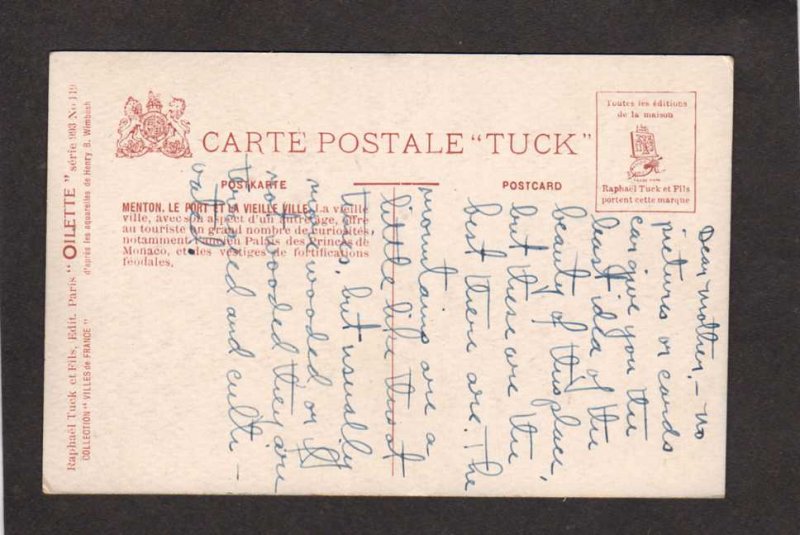 CARTE POSTALE "TUCK"
POSTKARTE
POSTCARD
MENTON. LE PORT ET LA VIEILLE VILLE. La vieille
ville, avec son aspect d'un autre âge, offre
au touriste un grand nombre de curiosités,
notamment l'ancien Palais des Princes de
Monaco, et des vestiges de fortifications
féodales.
Toutes les éditions
de la maison
TRADE MARK
Raphaël Tuck et Fils
portent cette marque
Raphaël Tuck et Fils, Edit. Paris "OILETTE" série 993 No 119
COLLECTION "VILLES de FRANCE" d'après les aquarelles de Henry B. Wimbush
Dear mother, – no
pictures or cards
can give you the
least idea of the
beauty of this place,
but these are the
best there are. The
mountains are a
little like those at
but usually
more wooded or if
not wooded they are
terraced and culti-
vated.